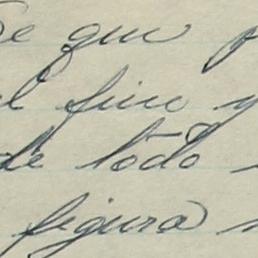 de que
el fin y
de todo
figura